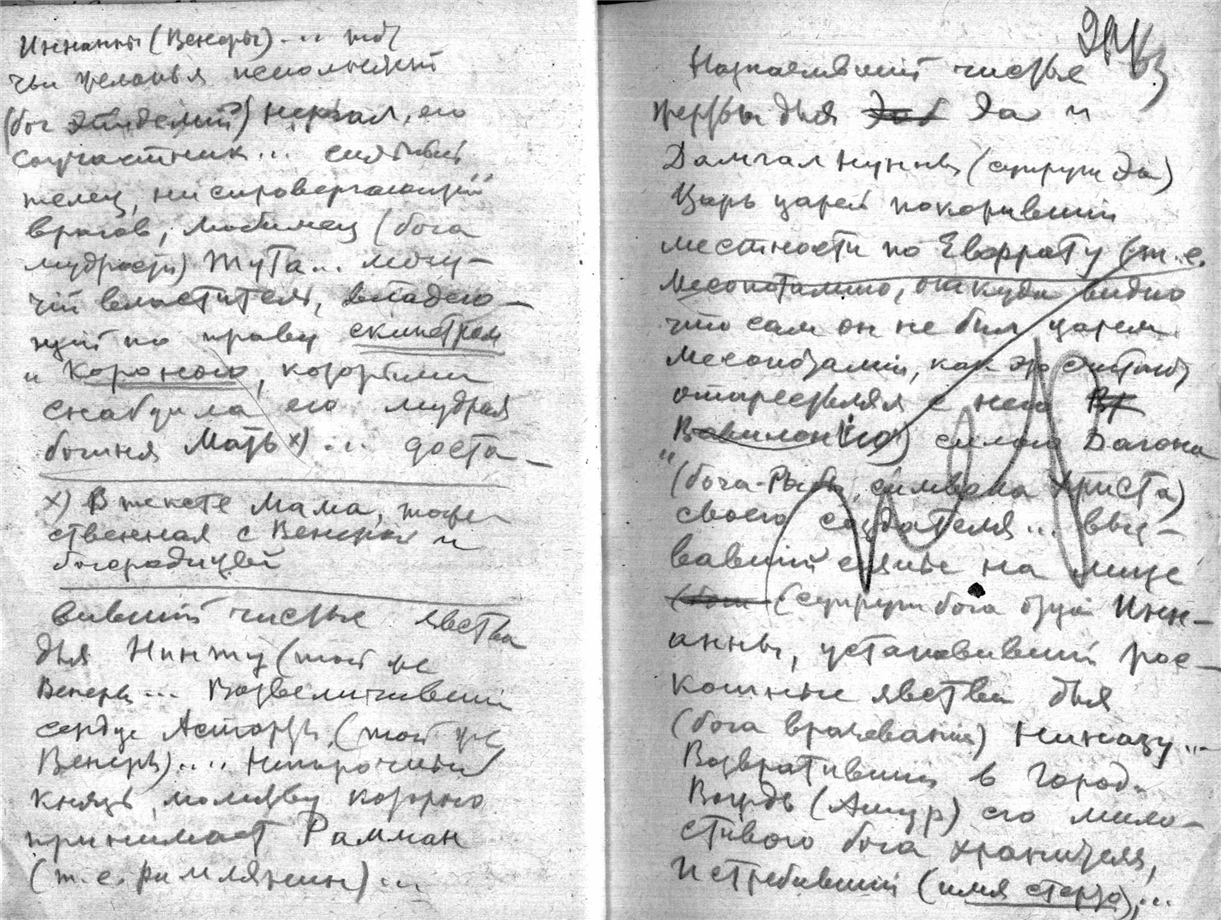 Иннанны (Венеры) ... тот
чьи желанья исполняет
(бог эпидемий) Нергал, его
соучастник... сильный
телец, ниспровергающий
врагов, любимец (бога
мудрости) Тута... могу-
чий властитель, владею-
щий по праву скипетром
и короною, которыми
снабдила его мудрая
богиня Мать х) ... доста-
х) В тексте Мама, тоже-
ственная с Венерой и
богородицей
вивший чистые яства
для Нинту (той же
Венеры... Возвеличивший
сердце Астарты (той же
Венеры).... Непорочный
князь, молитву которого
принимает Рамман
(т.е. римлянин)...
Назначивший чистые
жертвы для Эа и
Дамгалнунны (супруги Эа)
Царь царей покоривший
местности по Евфрату (т.е.
Месопотамию, откуда видно
что сам он не был царем
Месопотамии, как это считают
Вавилонию) силою Дагона
(бога-Рыбы, символа Христа)
своего создателя...
на лице
(супруги бога отца Инн-
анны, установивший рос-
кошные яства для
(бога врачевания) Ниназу...
Возвративший в город
(Ашур) его мило-
стивого бога хранителя,
Истребивший (имя стерто)...